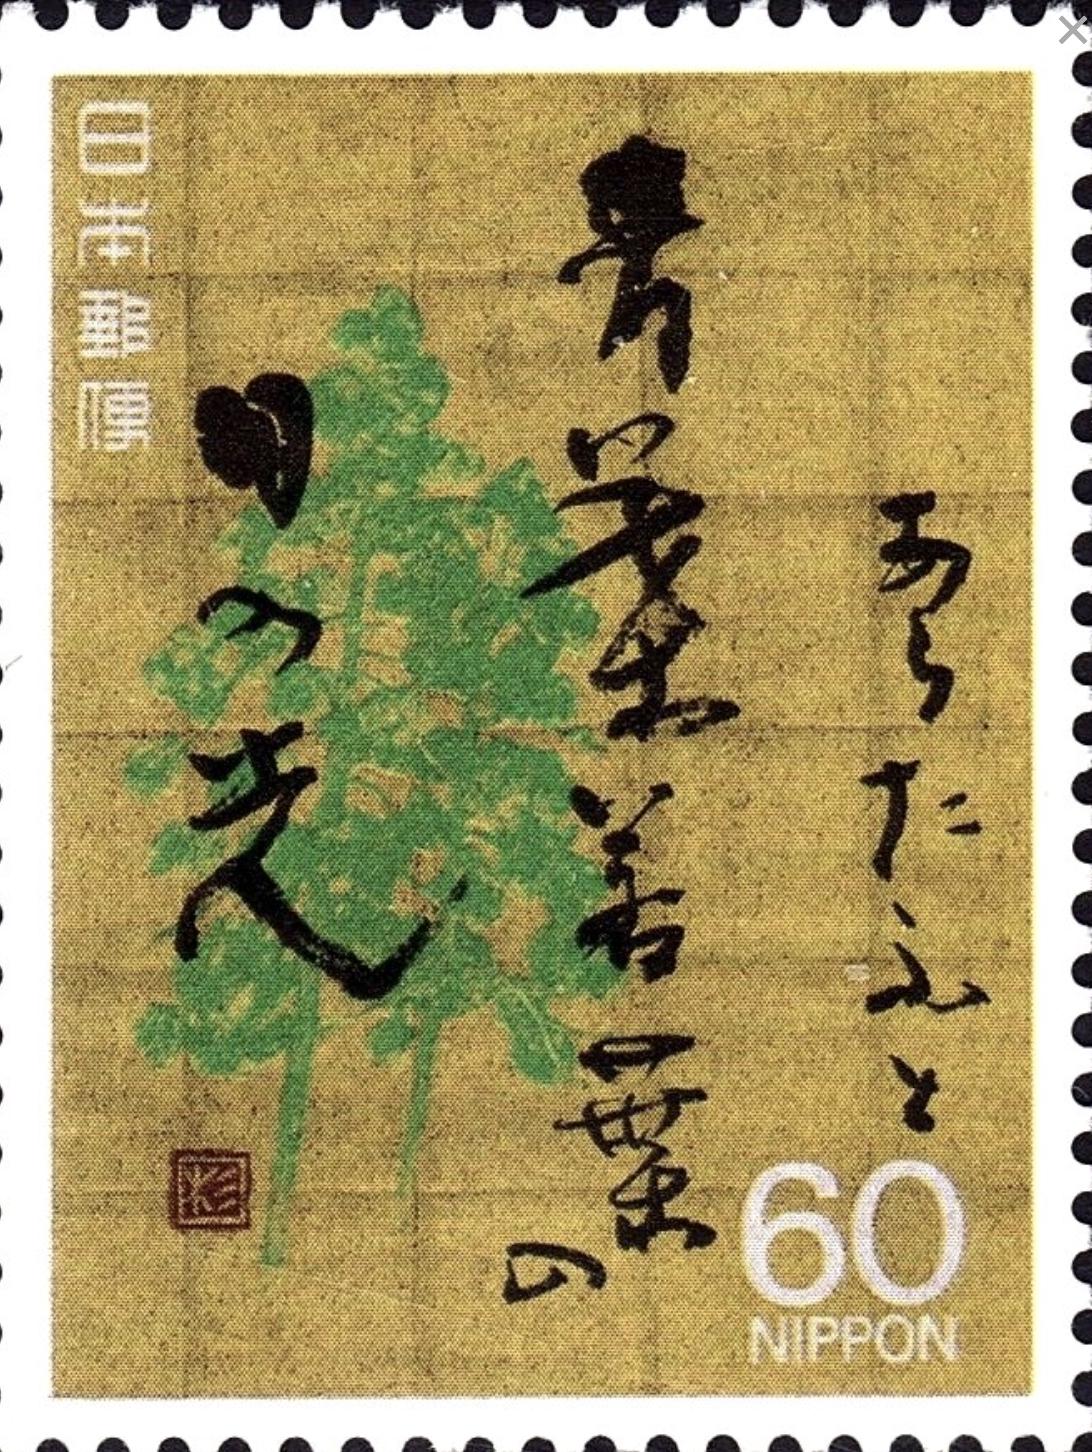 あらたふと
青葉若葉の
日の光
日本郵便
60
NIPPON